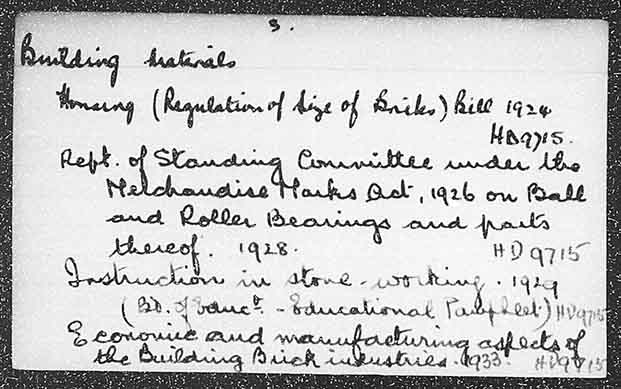 3.
Building Materials
Housing (Regulation of Size of Bricks) Bill 1924
HD9715.
Rept. of Standing Committee under the
Merchandise Marks Act, 1926 on Ball
and Roller Bearings and parts
thereof. 1928. HD9715
Instruction in stone-working. 1929
(Bd. of Educn. - Educational Pamphlet) HD9715
Economic and manufacturing aspects of
the Building Brick industries. 1933. HD9715